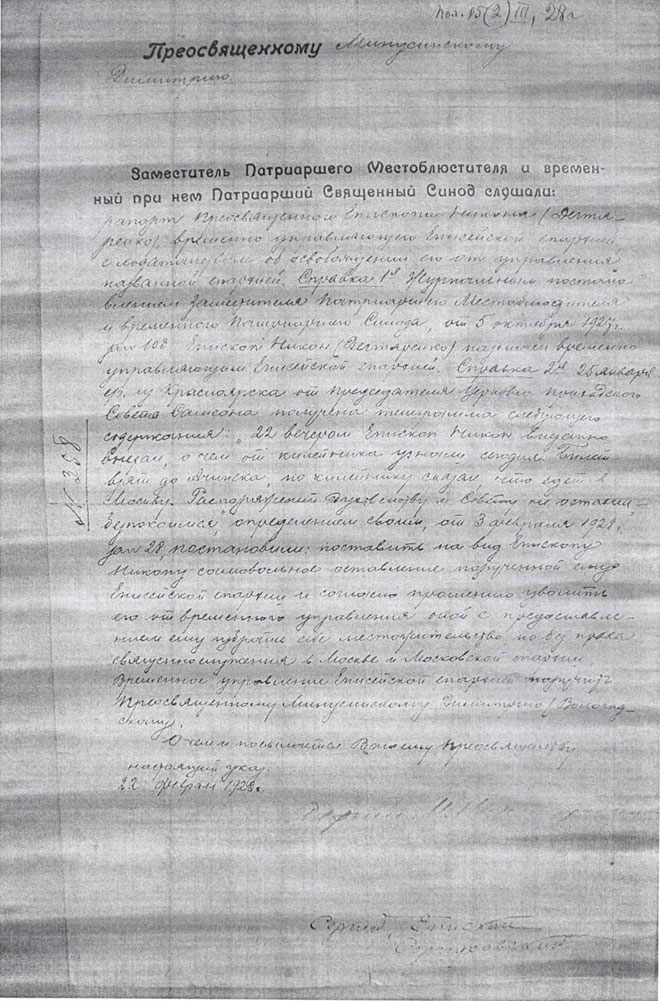 Пол. 15(2) III, 28 г
Преосвященному Минусинскому
Димитрию.
Заместитель Патриаршего Местоблюстителя и времен-
ный при нем Патриарший Священный Синод слушали:
рапорт Преосвященного Епископа Никона (Дегтя-
ренко), временно управляющего Енисейской епархией,
с ходатайством об освобождении его от управления
названной епархией. Справка 1я Журнальным постано-
влением Заместителя Патриаршего Местоблюстителя
и временного Патриаршего Синода, от 5 октября 1927 г.
за № Епископ Никон (Дегтяренко) назначен временно
управляющим Енисейской епархией. Справка 2я 25 января
с/г. из Красноярска от председателя Церковно приходского
Совета получена телеграмма следующего
содержания: „22 вечером Епископ Никон внезапно
выехал, о чем от келейника узнали сегодня билет
взят до Ачинска, но келейнику сказал, что едет в
Москву. Распоряжений Духовенству и Совету не оставил,
беспокоимся", определением своим, от 3 февраля 1928 г.
за № 28, постановили: поставить на вид Епископу
Никону самовольное оставление порученной ему
Енисейской епархии и согласно прошению уволить
его от временного управления оной с предоставле-
нием ему избрать себе местожительство но без права
священнослужения в Москве и Московской епархии.
Временное управление Енисейской епархией поручить
Преосвященному Минусинскому Димитрию (Вологод-
скому).
О чем и посылается Вашему Преосвященству
настоящий указ.
22 февраля 1928 г.
№ 358
Сергий, Епископ
Серпуховский